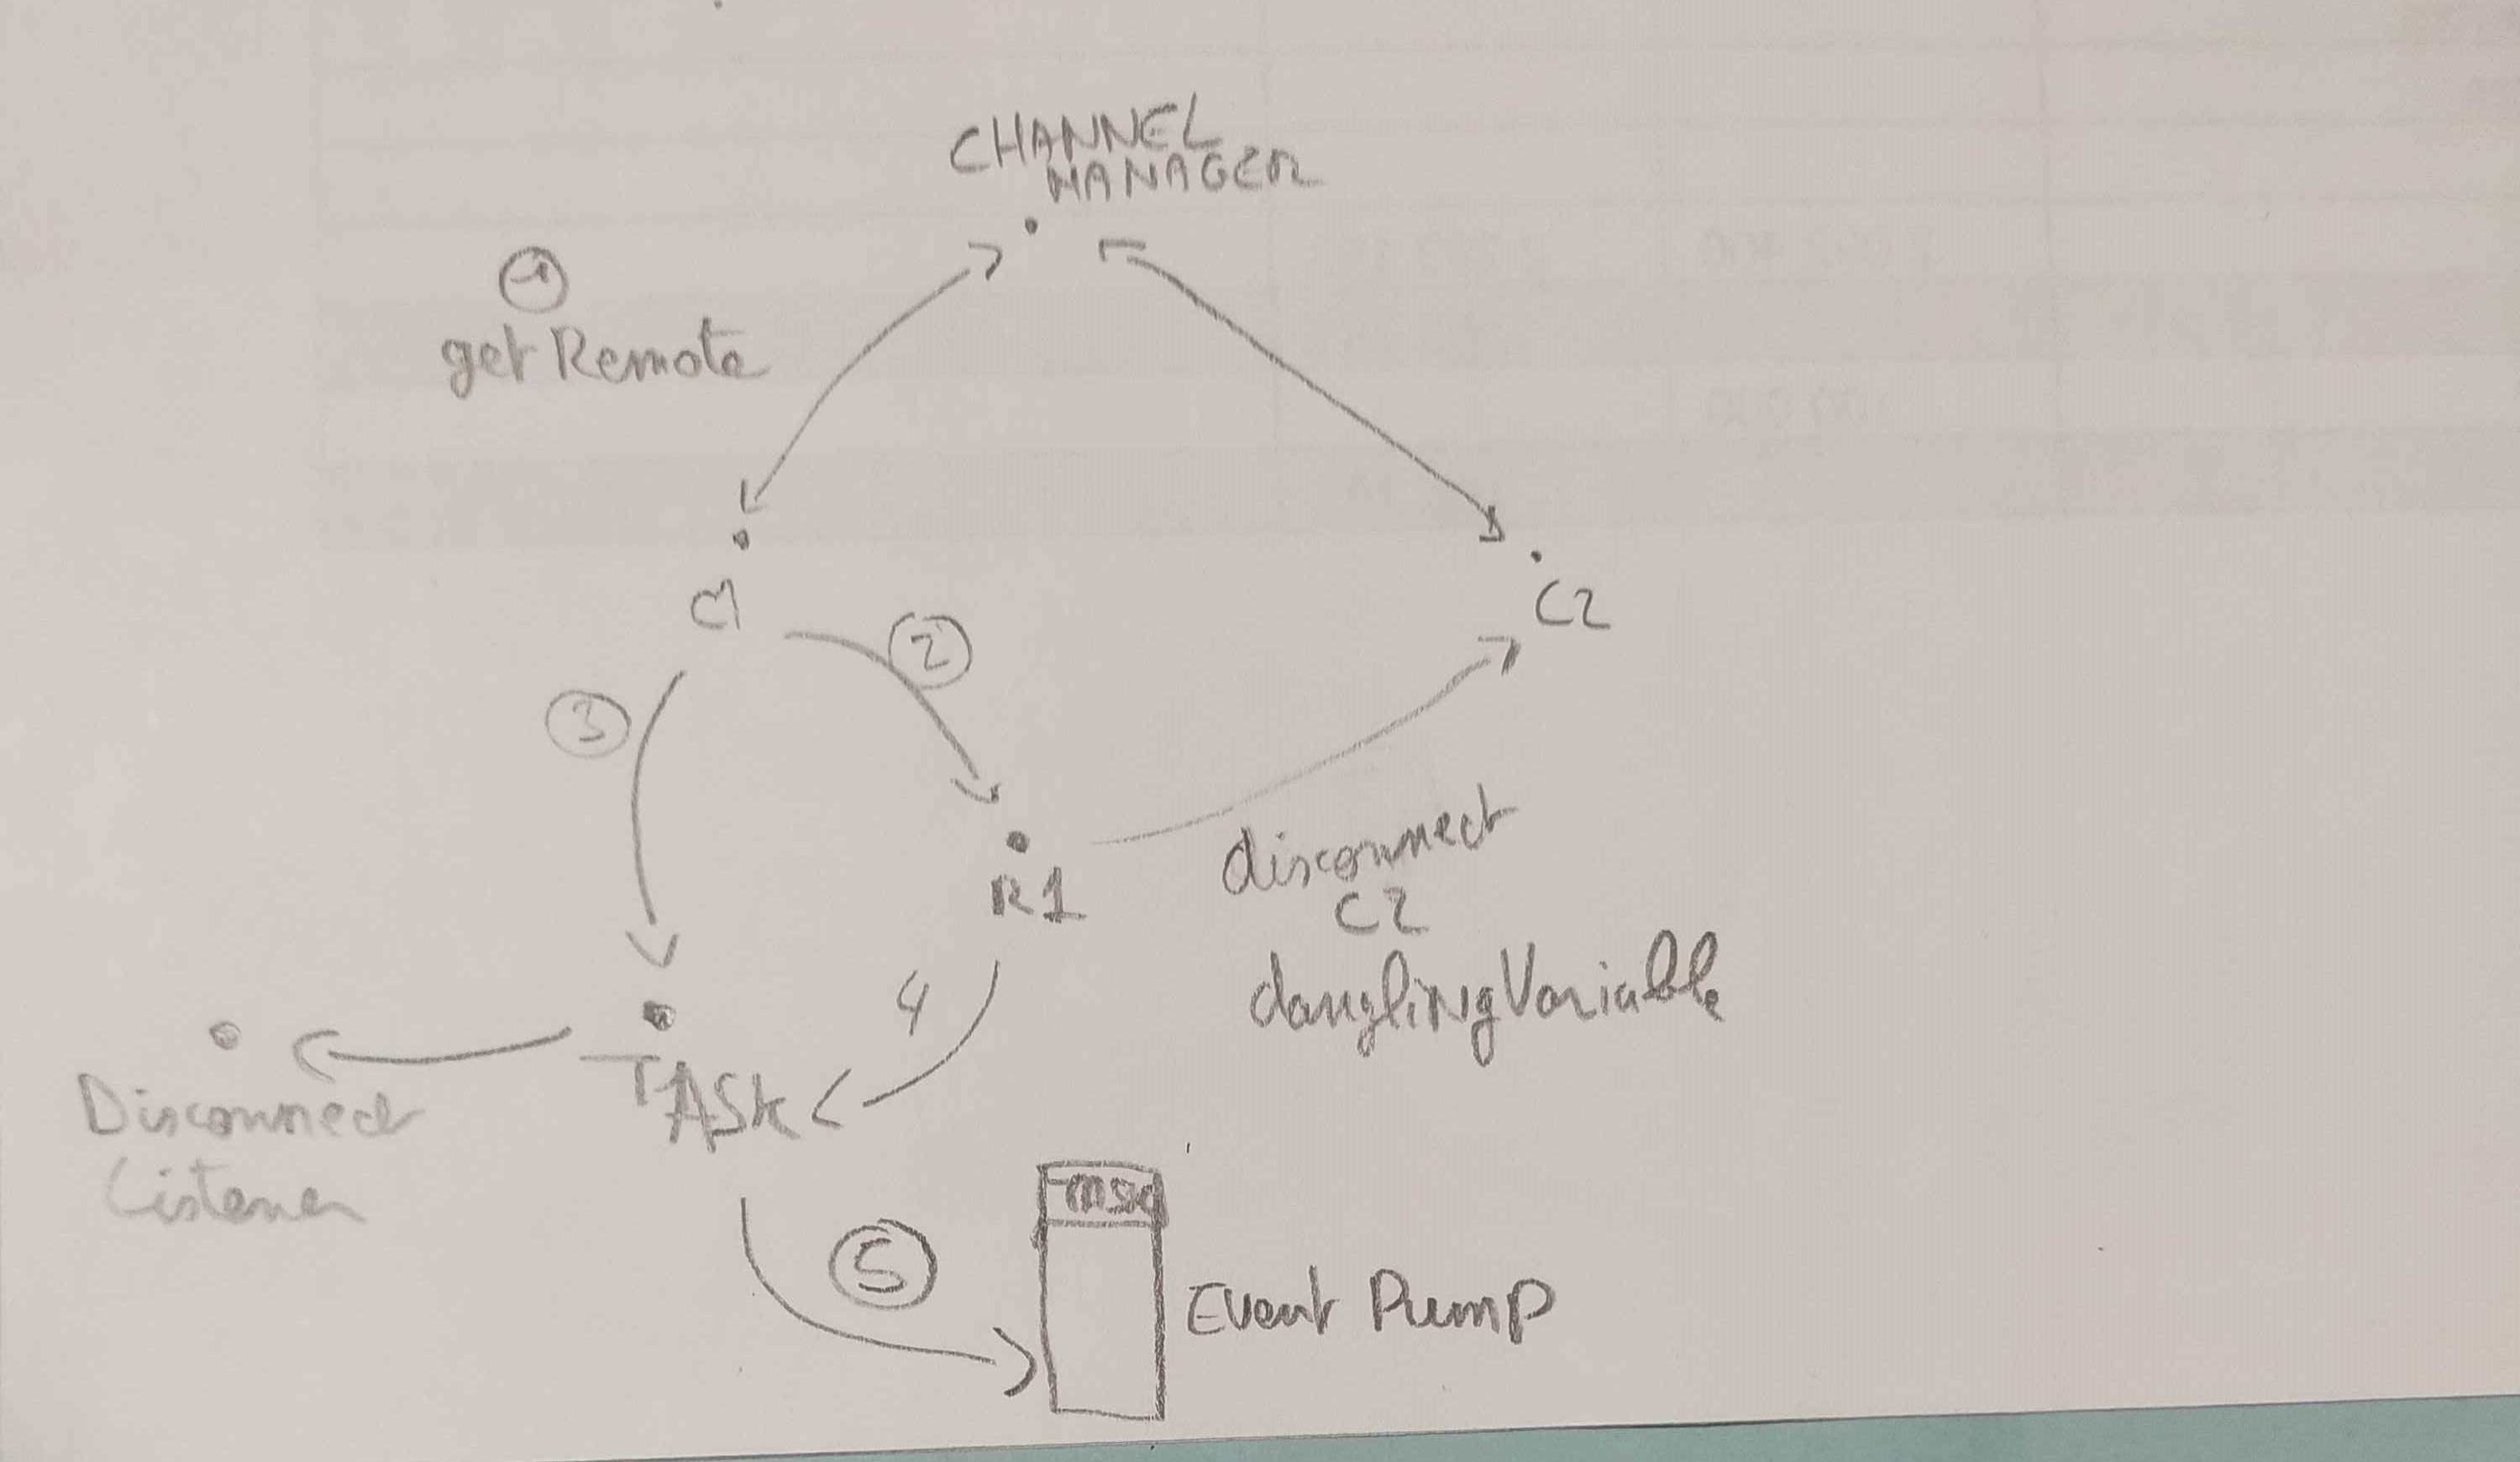 CHANNEL
MANAGER
1
getRemote
C1
C2
2
3
R1
disconnect
C2
danglingVariable
4
TASK
Disconnect
Listener
msg
5
Event Pump